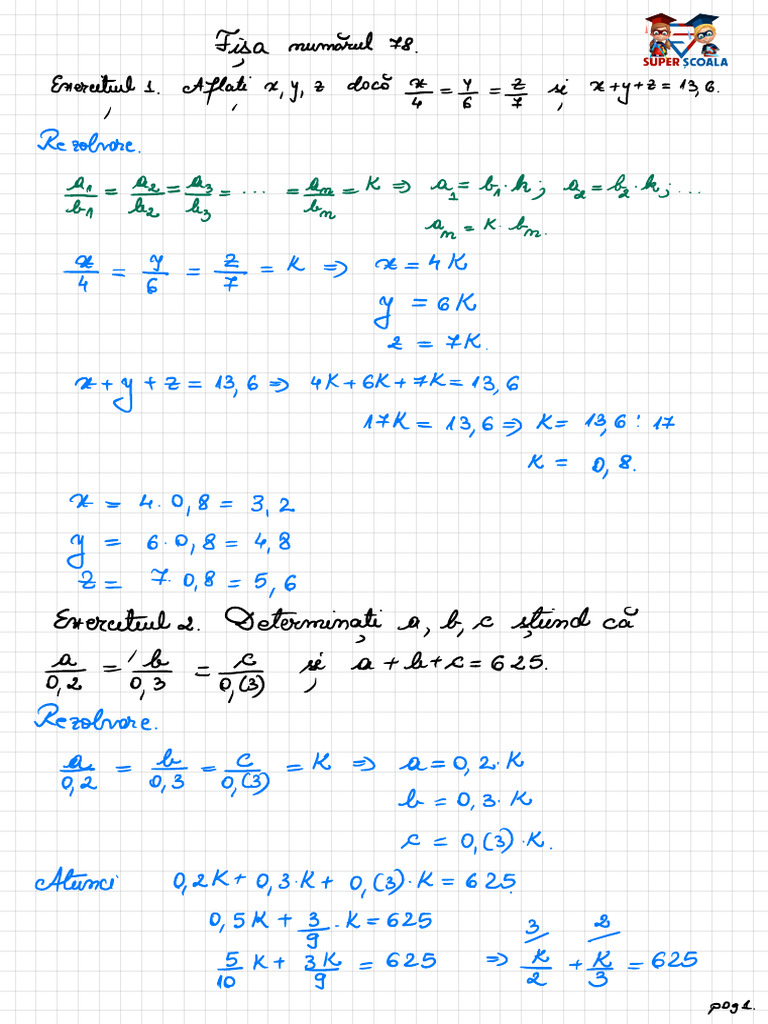 Fișa numărul 78.
SUPER ȘCOALA
Exercițiul 1. Aflați x, y, z dacă x/4 = y/6 = z/7 și x+y+z=13,6.
Rezolvare.
a₁/b₁ = a₂/b₂ = a₃/b₃ = ... = aₙ/bₙ = K ⇒ a₁ = b₁·k; a₂ = b₂·k; ...
aₙ = K·bₙ.
x/4 = y/6 = z/7 = K ⇒ x = 4K
y = 6K
z = 7K.
x+y+z = 13,6 ⇒ 4K+6K+7K = 13,6
17K = 13,6 ⇒ K = 13,6 : 17
K = 0,8.
x = 4·0,8 = 3,2
y = 6·0,8 = 4,8
z = 7·0,8 = 5,6
Exercițiul 2. Determinați a, b, c știind că
a/0,2 = b/0,3 = c/0,(3) și a+b+c = 625.
Rezolvare.
a/0,2 = b/0,3 = c/0,(3) = K ⇒ a = 0,2·K
b = 0,3·K
c = 0,(3)·K.
Atunci 0,2K + 0,3·K + 0,(3)·K = 625
0,5K + 3/9·K = 625
5/10 K + 3K/9 = 625 ⇒ ³⁾K/2 + ²⁾K/3 = 625
pag 1.